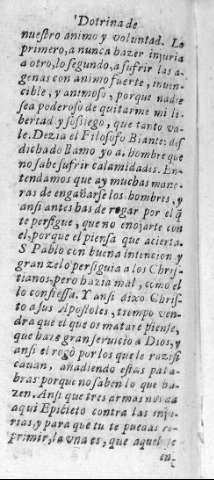 Dotrina de
nuestro animo y voluntad. Lo
primero, a nunca hazer injuria
a otro, lo segundo, a sufrir las a-
genas con animo fuerte, inuin-
cible, y animoso, porque nadie
sea poderoso de quitarme mi li-
bertad y sosiego, que tanto va-
le. Dezia el Filosofo Biante: des-
dichado llamo yo al hombre que
no sabe sufrir calamidades. En-
tendamos que ay muchas mane-
ras de engañarse los hombres, y
ansi antes has de rogar por el q̃
te persigue, que no enojarte con
el, porque el piensa que acierta.
S. Pablo con buena intencion y
gran zelo perseguia a los Chris-
tianos, pero hazia mal, como el
lo confiessa. Y ansi dixo Chris-
to a sus Apostoles, tiempo ven-
dra que el que os matare piense,
que haze gran seruicio a Dios, y
ansi el rogò por los que le cruzifi
cauan, añadiendo estas pala-
bras porque no saben lo que ha-
zen. Ansi que tres armas nos da
aqui Epicteto contra las inju-
rias, y para que tu te puedas re-
primir, la vna es, que aquel se
en-